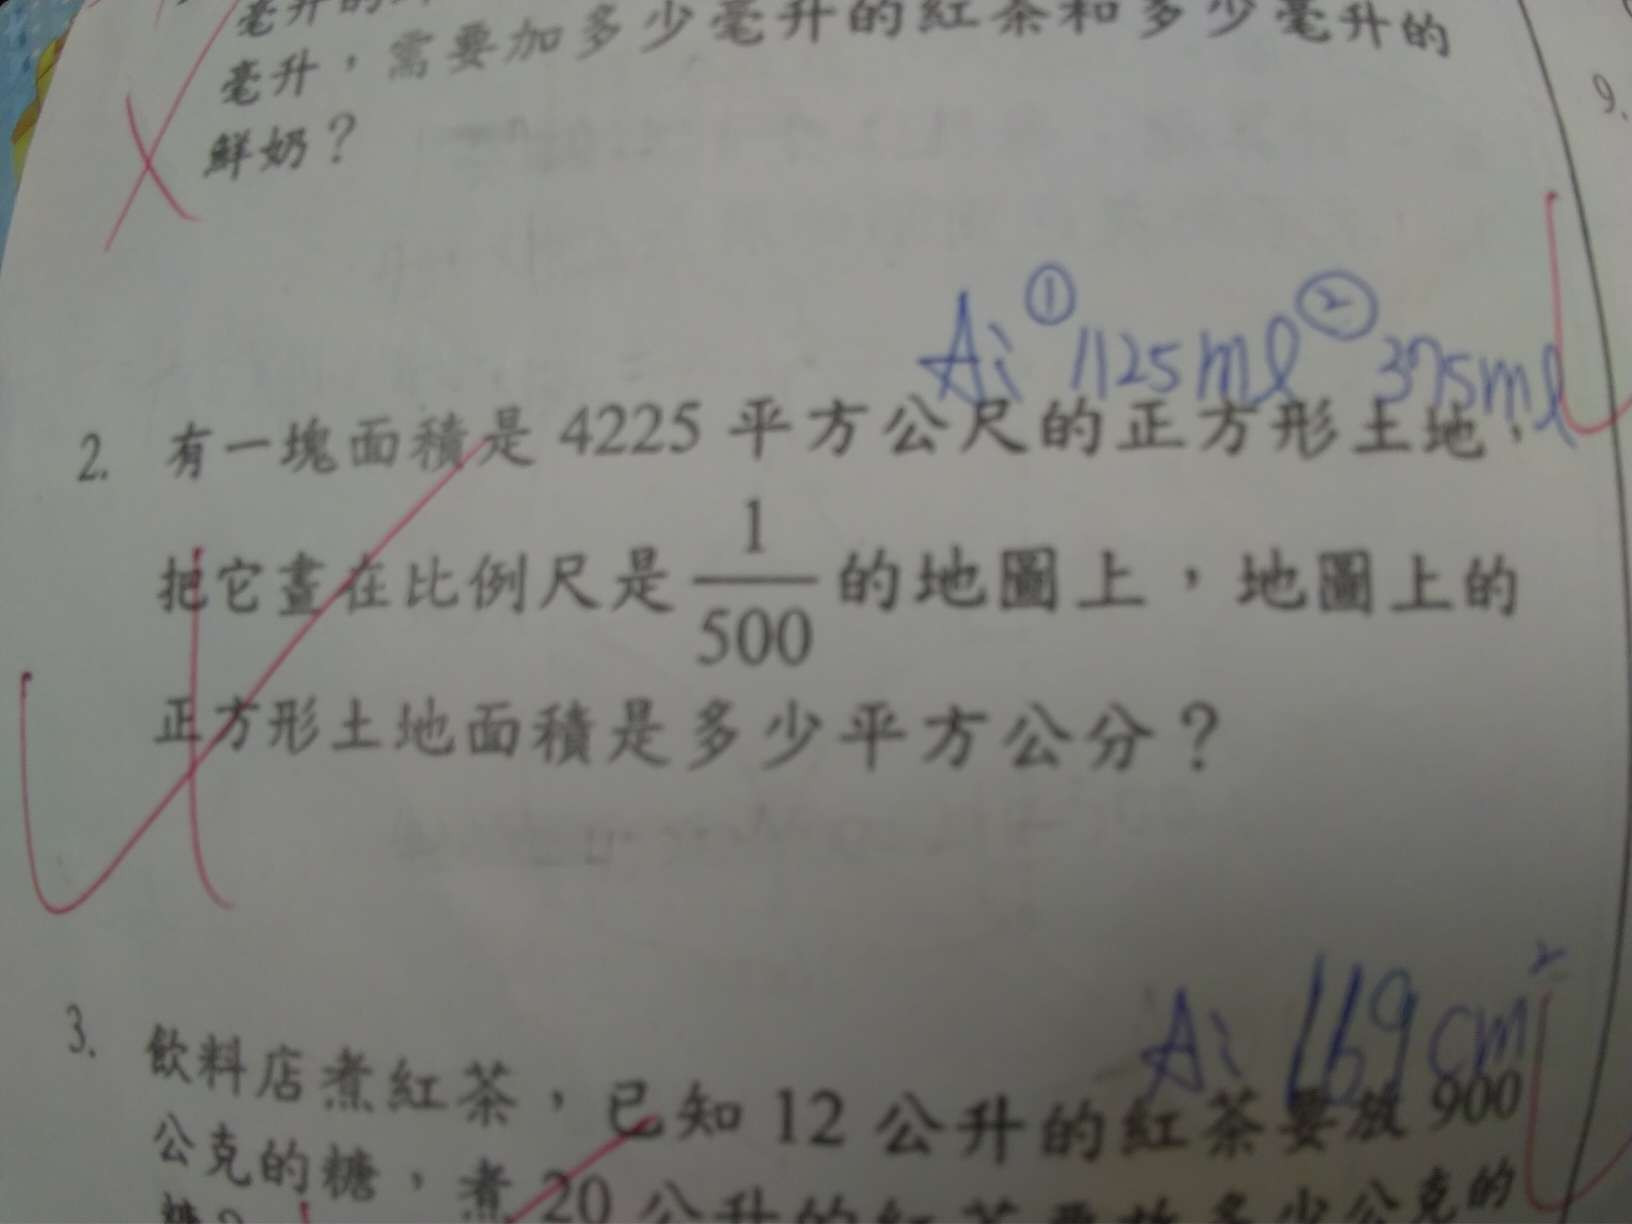 毫升的
毫升，需要加多少毫升的紅茶和多少毫升的
鮮奶？
9.
A: ① 1125ml ② 375ml
2. 有一塊面積是 4225 平方公尺的正方形土地，
把它畫在比例尺是 1/500 的地圖上，地圖上的
正方形土地面積是多少平方公分？
A: 169cm²
3. 飲料店煮紅茶，已知 12 公升的紅茶要放 900
公克的糖，煮 20 公升的紅茶要放多少公克的
糖？